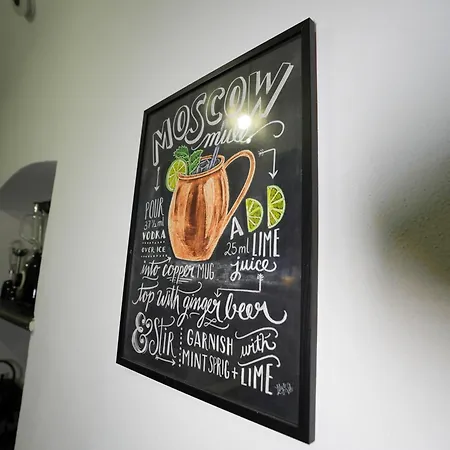 MOSCOW
mule
POUR
37 ½ ml
VODKA
OVER ICE
into COPPER MUG
ADD
25 ml LIME
juice
top with ginger beer
& STIR
GARNISH with
MINT SPRIG + LIME